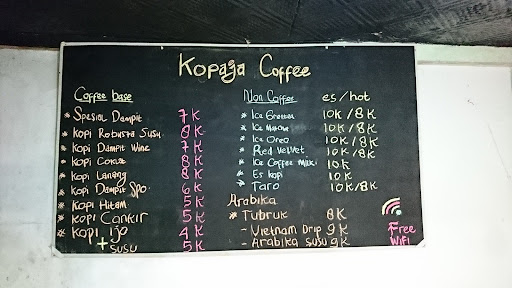 Kopaja Coffee
Coffee base
* Spesial Dampit 7K
* Kopi Robusta Susu 8K
* Kopi Dampit Wine 7K
* Kopi 8K
* Kopi Lanang 8K
* Kopi Dampit Spo 6K
* Kopi Hitam 5K
* Kopi Cangkir 5K
* Kopi Ijo 4K
+ Susu 5K
Non Coffee es/hot
* Ice 10K/8K
* Ice 10K/8K
* Ice Oreo 10K/8K
* Red Velvet 10K/8K
* Ice Coffee Milk 10K
* Es Kopi 10K
* Taro 10K/8K
Arabika
* Tubruk 8K
- Vietnam Drip 9K
- Arabika Susu 9K
Free
WiFi